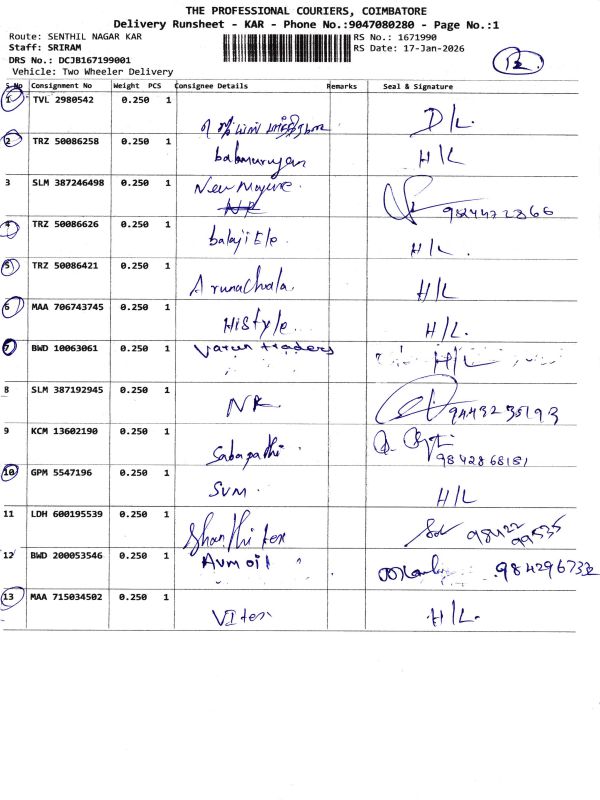 THE PROFESSIONAL COURIERS, COIMBATORE
Delivery Runsheet - KAR - Phone No.:9047080280 - Page No.:1
Route: SENTHIL NAGAR KAR
RS No.: 1671990
Staff: SRIRAM
RS Date: 17-Jan-2026
DRS No.: DCJB167199001
Vehicle: Two Wheeler Delivery
S.No Consignment No Weight PCS Consignee Details Remarks Seal & Signature
1 TVL 2980542 0.250 1 D/L.
2 TRZ 50086258 0.250 1 balamurugan H/L
3 SLM 387246498 0.250 1 New
NR
4 TRZ 50086626 0.250 1 balaji Ele. H/L.
5 TRZ 50086421 0.250 1 Arunachala. H/L
6 MAA 706743745 0.250 1 HiStyle. H/L.
7 BWD 10063061 0.250 1 Varun traders H/L
8 SLM 387192945 0.250 1 NR
9 KCM 13602190 0.250 1 Sabapathi 9842868151
10 GPM 5547196 0.250 1 SVM. H/L
11 LDH 600195539 0.250 1 Shanthi tex 98422 99535
12 BWD 200053546 0.250 1 Avm oil
13 MAA 715034502 0.250 1 VItex H/L.